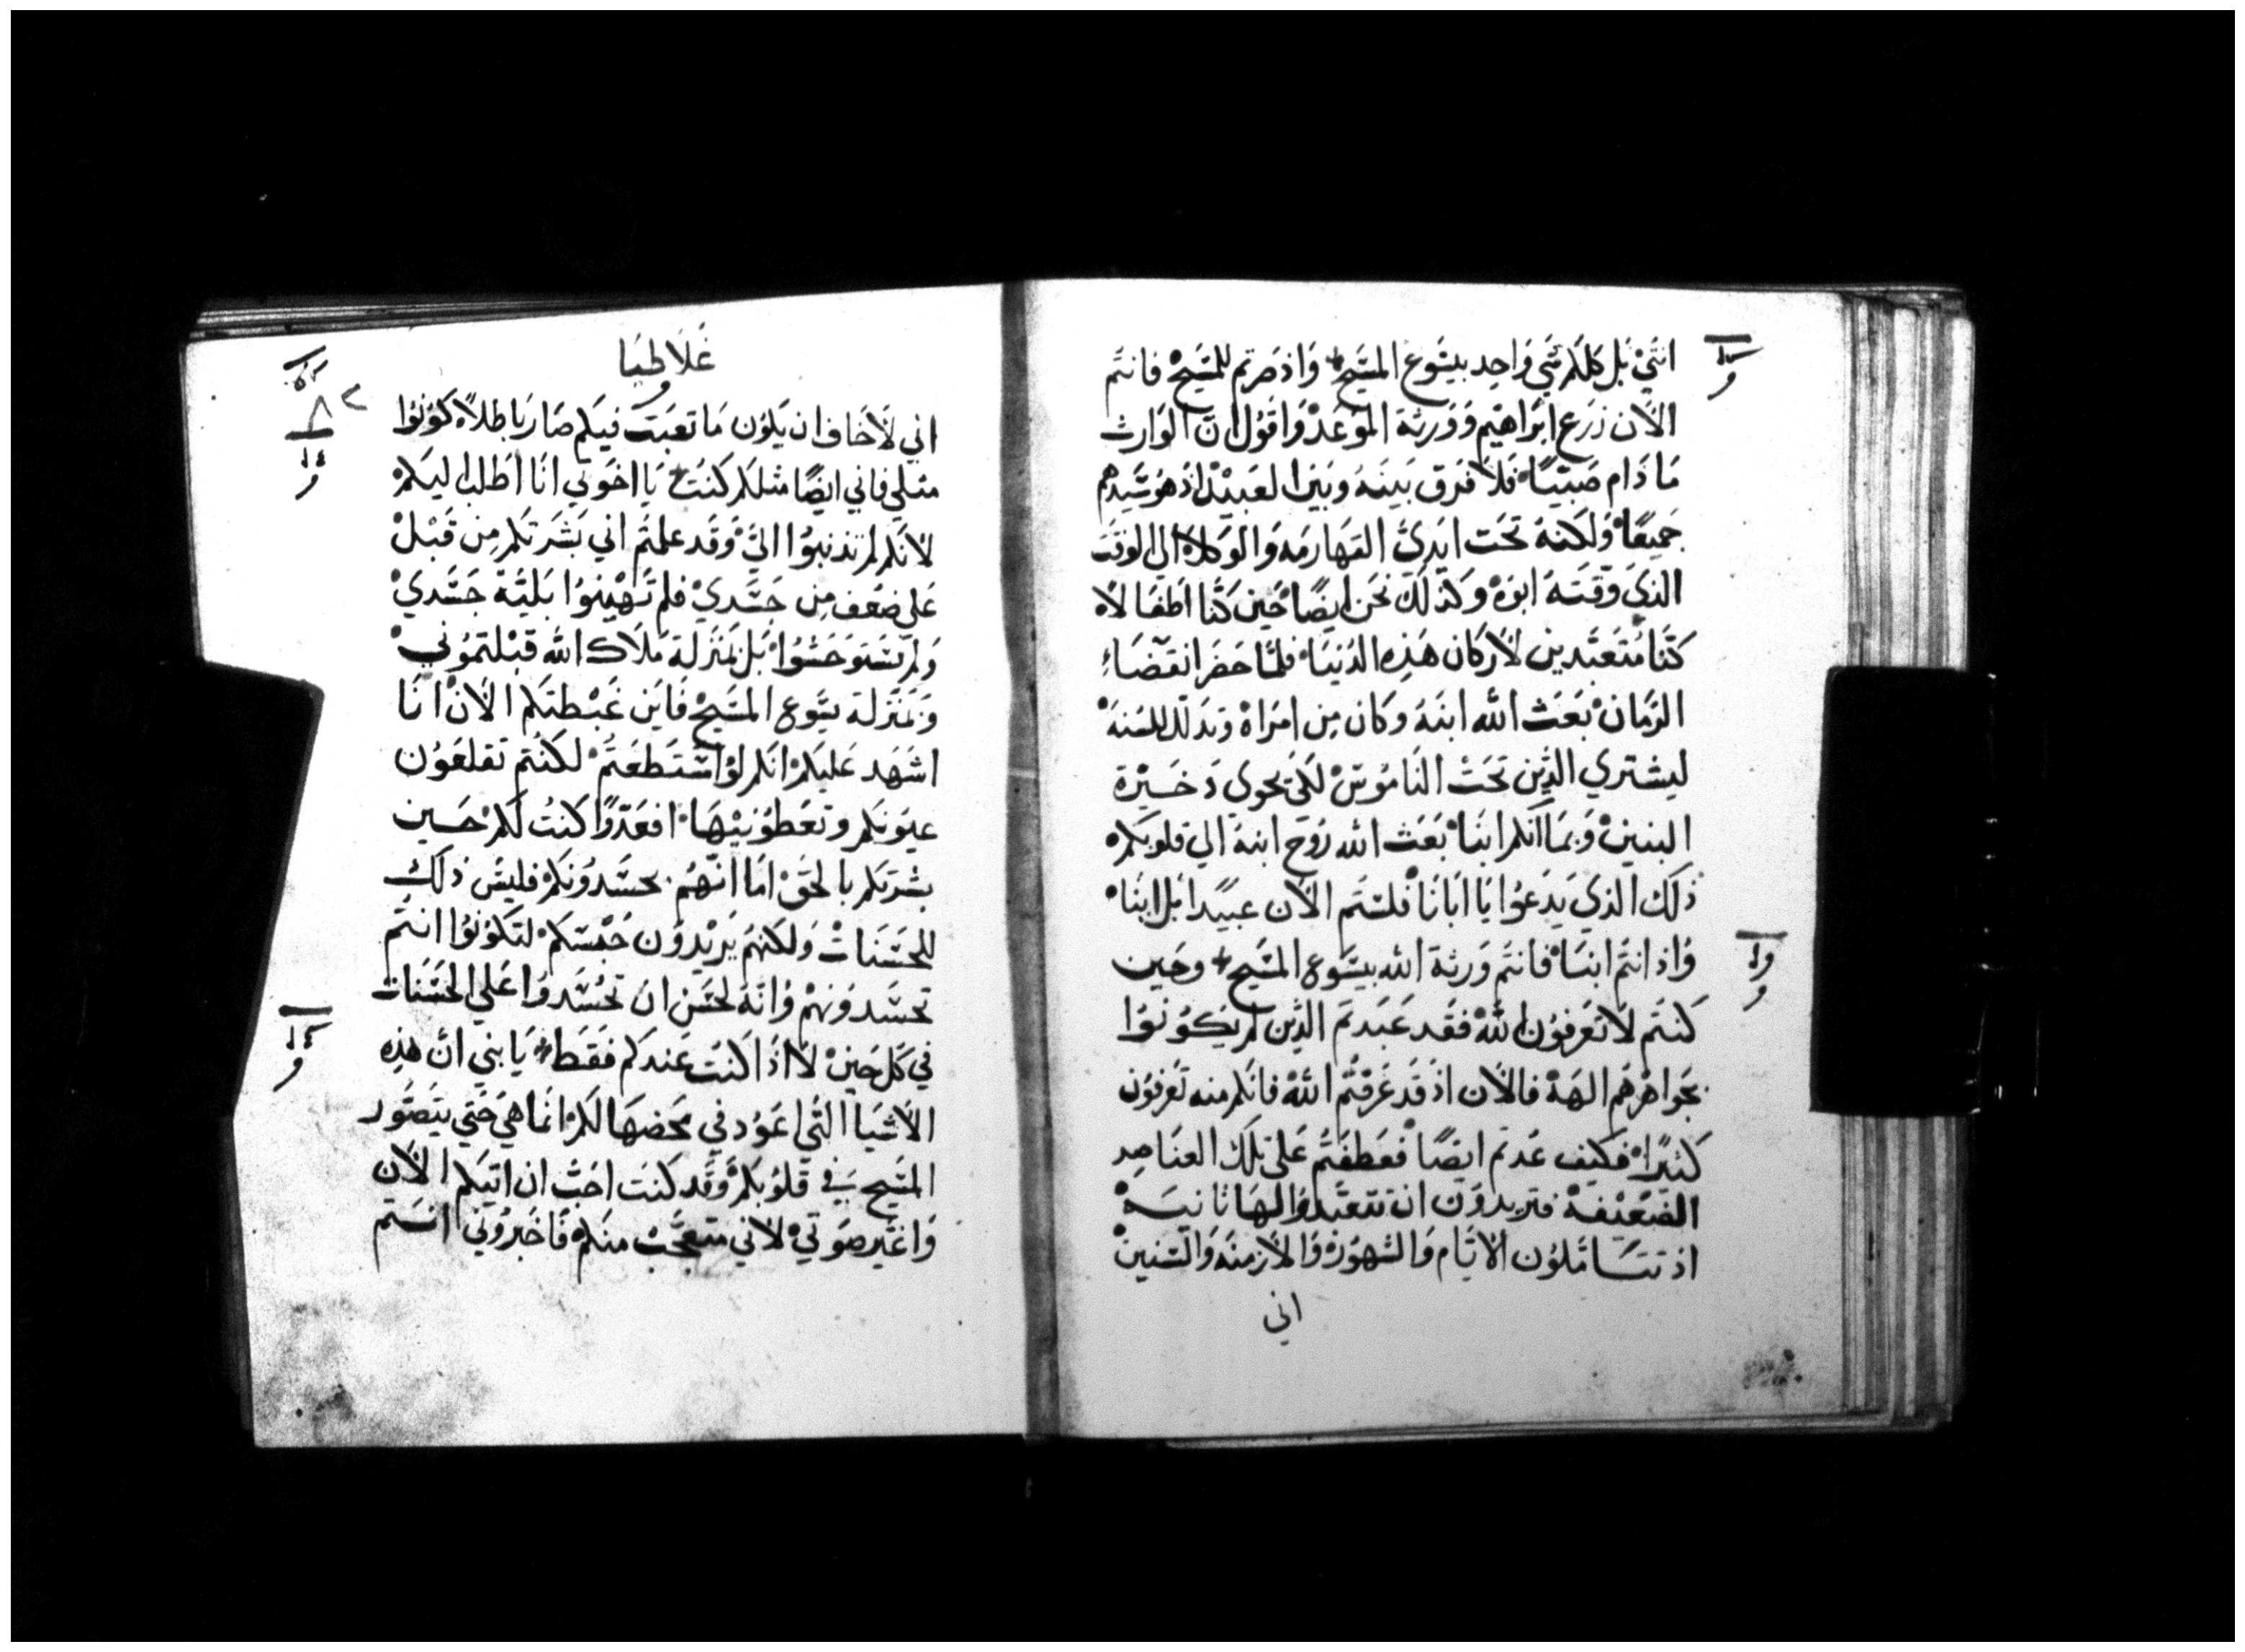 انثي بل كلكم شي واحد بيسوع المسيح واذ صرتم للمسيح فانتم
الان زرع ابراهيم وورثة الموعد واقول ان الوارث
ما دام صبيًا فلا فرق بينه وبين العبيد اذ هو سيدهم
جميعًا ولكنه تحت ايدي القهارمه والوكلاء الي الوقت
الذي وقته ابوه وكذلك نحن ايضًا حين كنا اطفالا
كنا متعبدين لاركان هذه الدنيا فلما حضر انقضاء
الزمان بعث الله ابنه وكان من امراة وتذلل للسنه
ليشتري الذين تحت الناموس لكي نحوي دخيرة
البنين وبما انكم ابنا بعث الله روح ابنه الي قلوبكم
ذلك الذي يدعوا يا ابانا فلستم الان عبيدا بل ابنا
واذ انتم ابنا فانتم ورثة الله بيسوع المسيح وحين
كنتم لا تعرفون الله فقد عبدتم الذين لم يكونوا
بجواهرهم الهة فالان اذ قد عرفتم الله فانكم منه تعرفون
كثيرًا فكيف عدتم ايضًا فعطفتم على تلك العناصر
الضعيفة فتريدون ان تتعبدوا لها ثانية
اذ تتاملون الايام والشهور والازمنه والسنين
اني
غلاطيا
اني لاخاف ان يكون ما تعبت فيكم صار باطلا كونوا
مثلي فاني ايضًا مثلكم كنت يا اخوتي انا اطلب اليكم
لانكم لم تذنبوا اليّ وقد علمتم اني بشرتكم من قبل
على ضعف من جسدي فلم تهينوا بلية جسدي
ولم تستوحشوا بل بمنزلة ملاك الله قبلتموني
وبمنزلة يسوع المسيح فاين غبطتكم الان انا
اشهد عليكم انكم لو استطعتم لكنتم تقلعون
عيونكم وتعطونيها افعدوا كنت لكم حين
بشرتكم بالحق اما انهم يحسدونكم فليس ذلك
للحسنات ولكنهم يريدون حبسكم لتكونوا انتم
تحسدونهم وانه لحسن ان تحسدوا على الحسنات
في كل حين لا اذا كنت عندكم فقط يا بني ان هذه
الاشيا التي اعود في مخضها لكم انما هي حتي يتصور
المسيح في قلوبكم وقد كنت احب ان اتيكم الان
واغير صوتي لاني متعجب منكم فاخبروني انتم